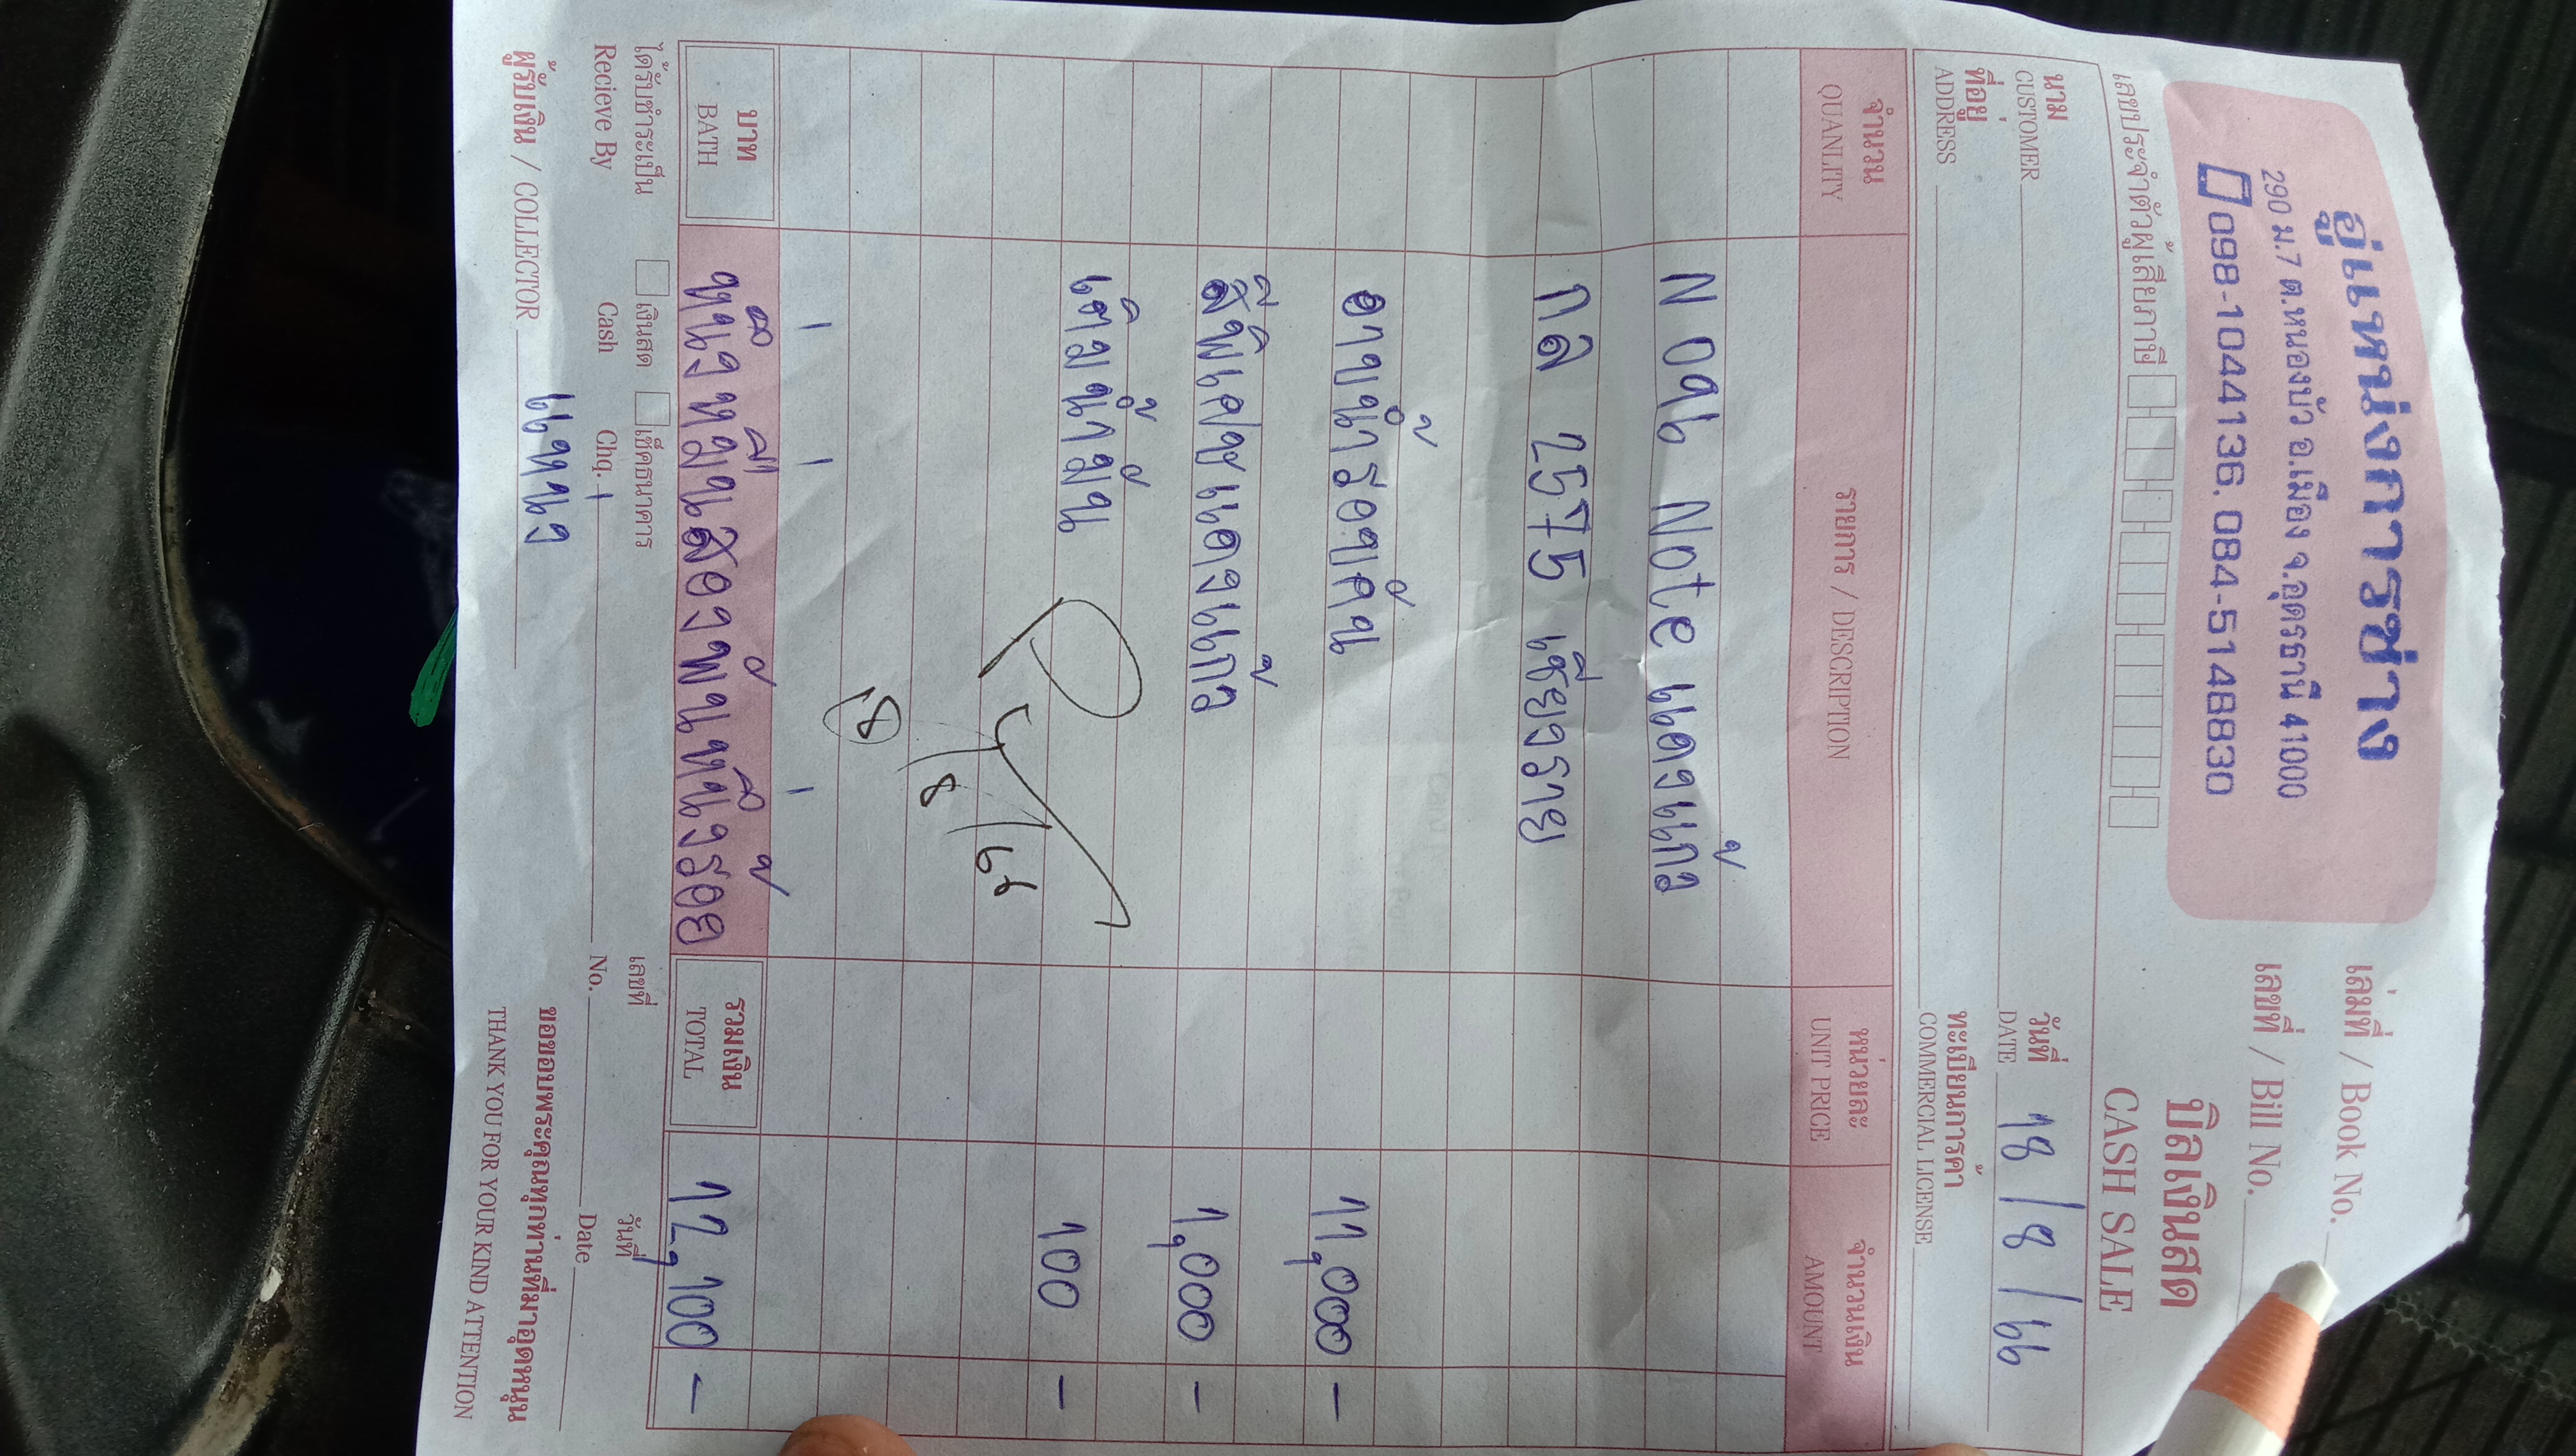 อู่แหน่งการช่าง
290 ม.7 ต.หนองบัว อ.เมือง จ.อุดรธานี 41000
098-1044136, 084-5148830
เล่มที่ / Book No.
เลขที่ / Bill No.
บิลเงินสด
CASH SALE
เลขประจำตัวผู้เสียภาษี
นาม
CUSTOMER
วันที่
DATE 18 / 8 / 66
ที่อยู่
ADDRESS
ทะเบียนการค้า
COMMERCIAL LICENSE
จำนวน รายการ / DESCRIPTION หน่วยละ จำนวนเงิน
QUANLITY UNIT PRICE AMOUNT
N 096 Note แดงแก้ว
กด 2575 เชียงราย
อาบน้ำรอบคัน 11,000 -
สีพิเศษแดงแก้ว 1,000 -
เติมน้ำมัน 100 -
8
บาท
BATH
หนึ่งหมื่นสองพันหนึ่งร้อย
รวมเงิน
TOTAL
12,100 -
ได้รับชำระเป็น เงินสด เช็คธนาคาร เลขที่ วันที่
Recieve By Cash Chq. No. Date
ผู้รับเงิน / COLLECTOR แหนง
ขอขอบพระคุณทุกท่านที่มาอุดหนุน
THANK YOU FOR YOUR KIND ATTENTION